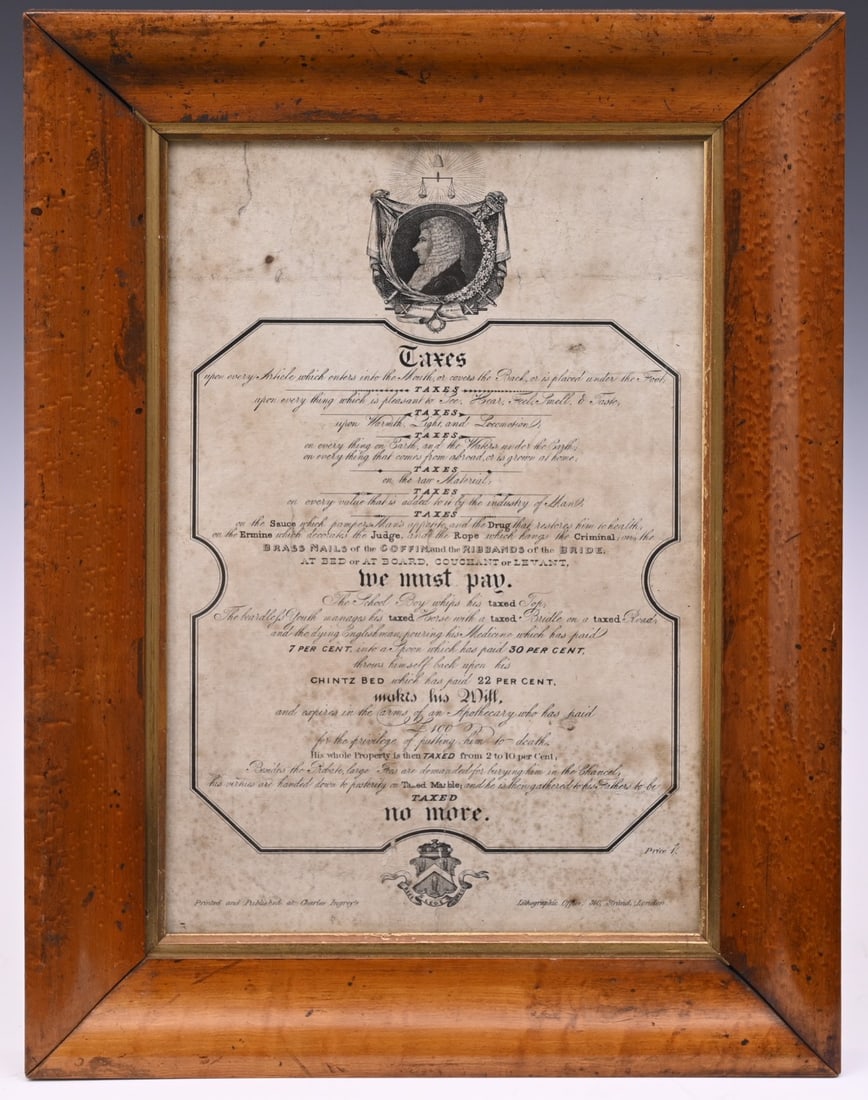 Taxes
upon every Article which enters into the Mouth, or covers the Back, or is placed under the Foot,
TAXES
upon every thing which is pleasant to See, Hear, Feel, Smell, & Taste,
TAXES
upon Warmth, Light, and Locomotion,
TAXES
on every thing on Earth, and the Waters under the Earth;
on every thing that comes from abroad, or is grown at home;
TAXES
on the raw Material,
TAXES
on every value that is added to it by the industry of Man,
TAXES
on the Sauce which pampers Man's appetite and the Drug that restores him to health,
on the Ermine which decorates the Judge, and the Rope which hangs the Criminal, on the
BRASS NAILS of the COFFIN, and the RIBBANDS of the BRIDE,
AT BED or AT BOARD, COUCHANT or LEVANT,
we must pay.
The School Boy whips his taxed Top,
The beardless Youth manages his taxed Horse with a taxed Bridle on a taxed Road,
and the dying Englishman, pouring his Medicine which has paid
7 PER CENT, into a Spoon which has paid 30 PER CENT,
throws himself back upon his
CHINTZ BED which has paid 22 PER CENT,
makes his Will,
and expires in the arms of an Apothecary who has paid
£100
for the privilege of putting him to death.
His whole Property is then TAXED from 2 to 10 per Cent,
Besides the Probate, large Fees are demanded for burying him in the Chancel,
his virtues are handed down to posterity on Taxed Marble; and he is then gathered to his Fathers to be
TAXED
no more.
Price 1/.
Printed and Published at Charles Ingrey's Lithographic Office, 310, Strand, London